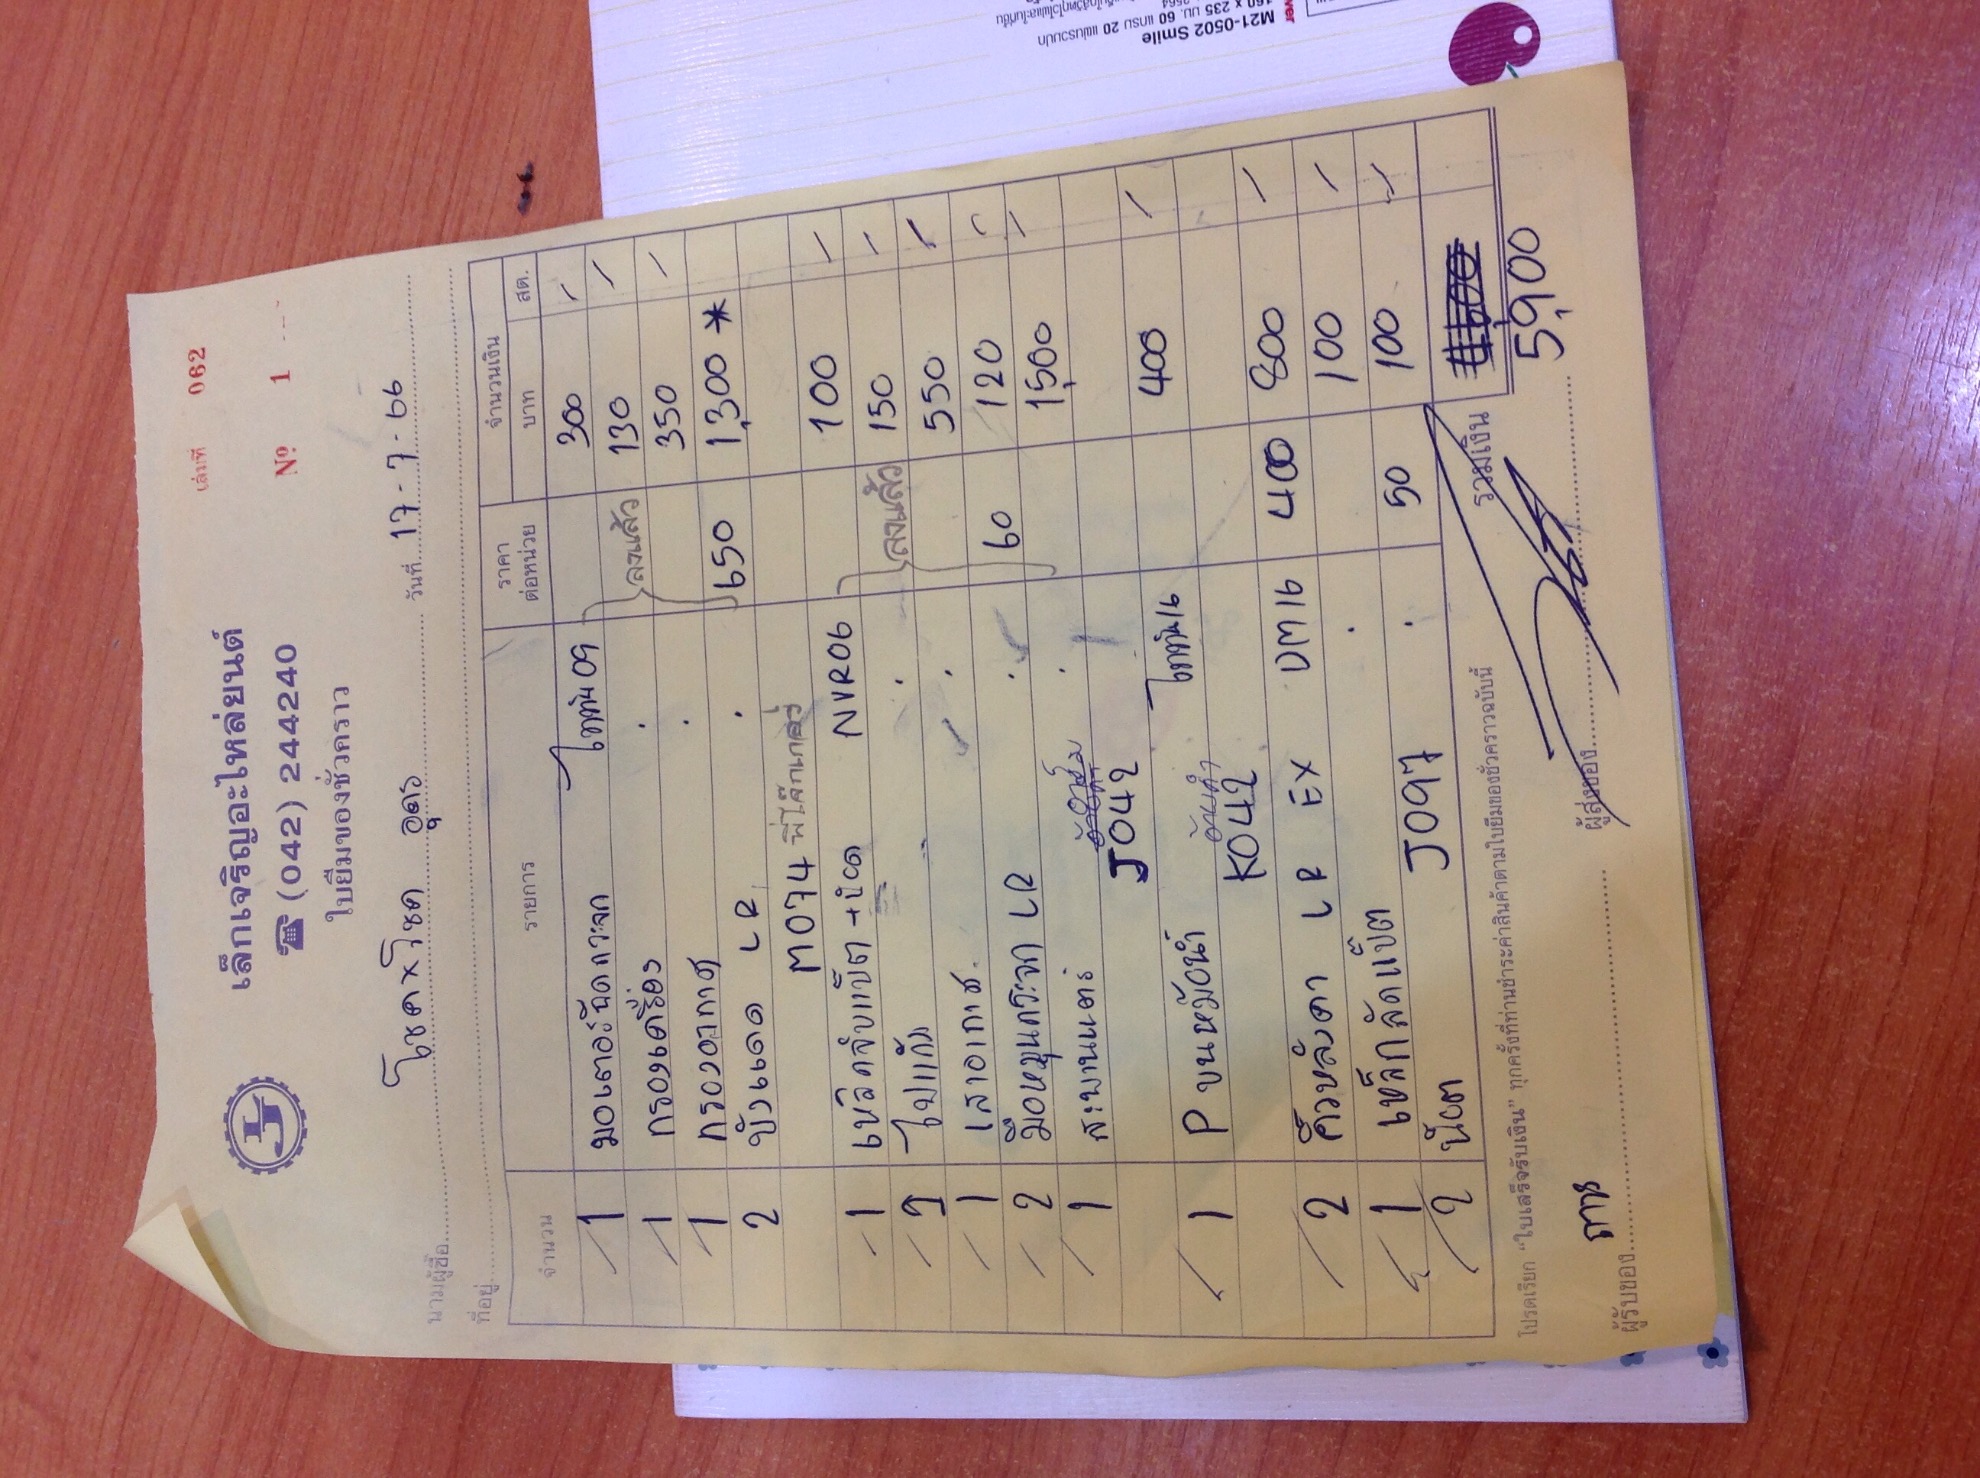 เล่มที่ 062
เล็กเจริญอะไหล่ยนต์
☎ (042) 244240
Nº 1
ใบยืมของชั่วคราว
นามผู้ซื้อ โชคxโชค อุดร วันที่ 17-7-66
ที่อยู่
จำนวน รายการ ราคาต่อหน่วย จำนวนเงิน บาท สต.
1 มอเตอร์ฉีดกระจก ไททัน 09 300
1 กรองเครื่อง . 130
1 กรองอากาศ . ลงแล้ว 350
2 บังแดด LR . 650 1,300 *
M074 พี่โค๊กเกลอร์
1 เหล็กจับแป๊ต + น๊อต NVR06 100
ใบแก้ว . 150
1 เสาอากาศ . ลงแล้ว 550
2 มือหมุนกระจก LR . 60 120
1 สะพานแตร . 1,500
J042
1 P บนหม้อน้ำ ไททัน 16 400
K042
2 คิ้วหลังคา LR EX DM16 400 800
1 เหล็กลัดแป๊ต . 100
2 น๊อต J097 . 50 100
รวมเงิน 5,900
โปรดเรียก "ใบเสร็จรับเงิน" ทุกครั้งที่ท่านชำระค่าสินค้าตามใบยืมของชั่วคราวฉบับนี้
ผู้รับของ ผู้ส่งของ
M21-0502 Smile
160 x 235 มม. 60 แกรม 20 แผ่นรวมปก